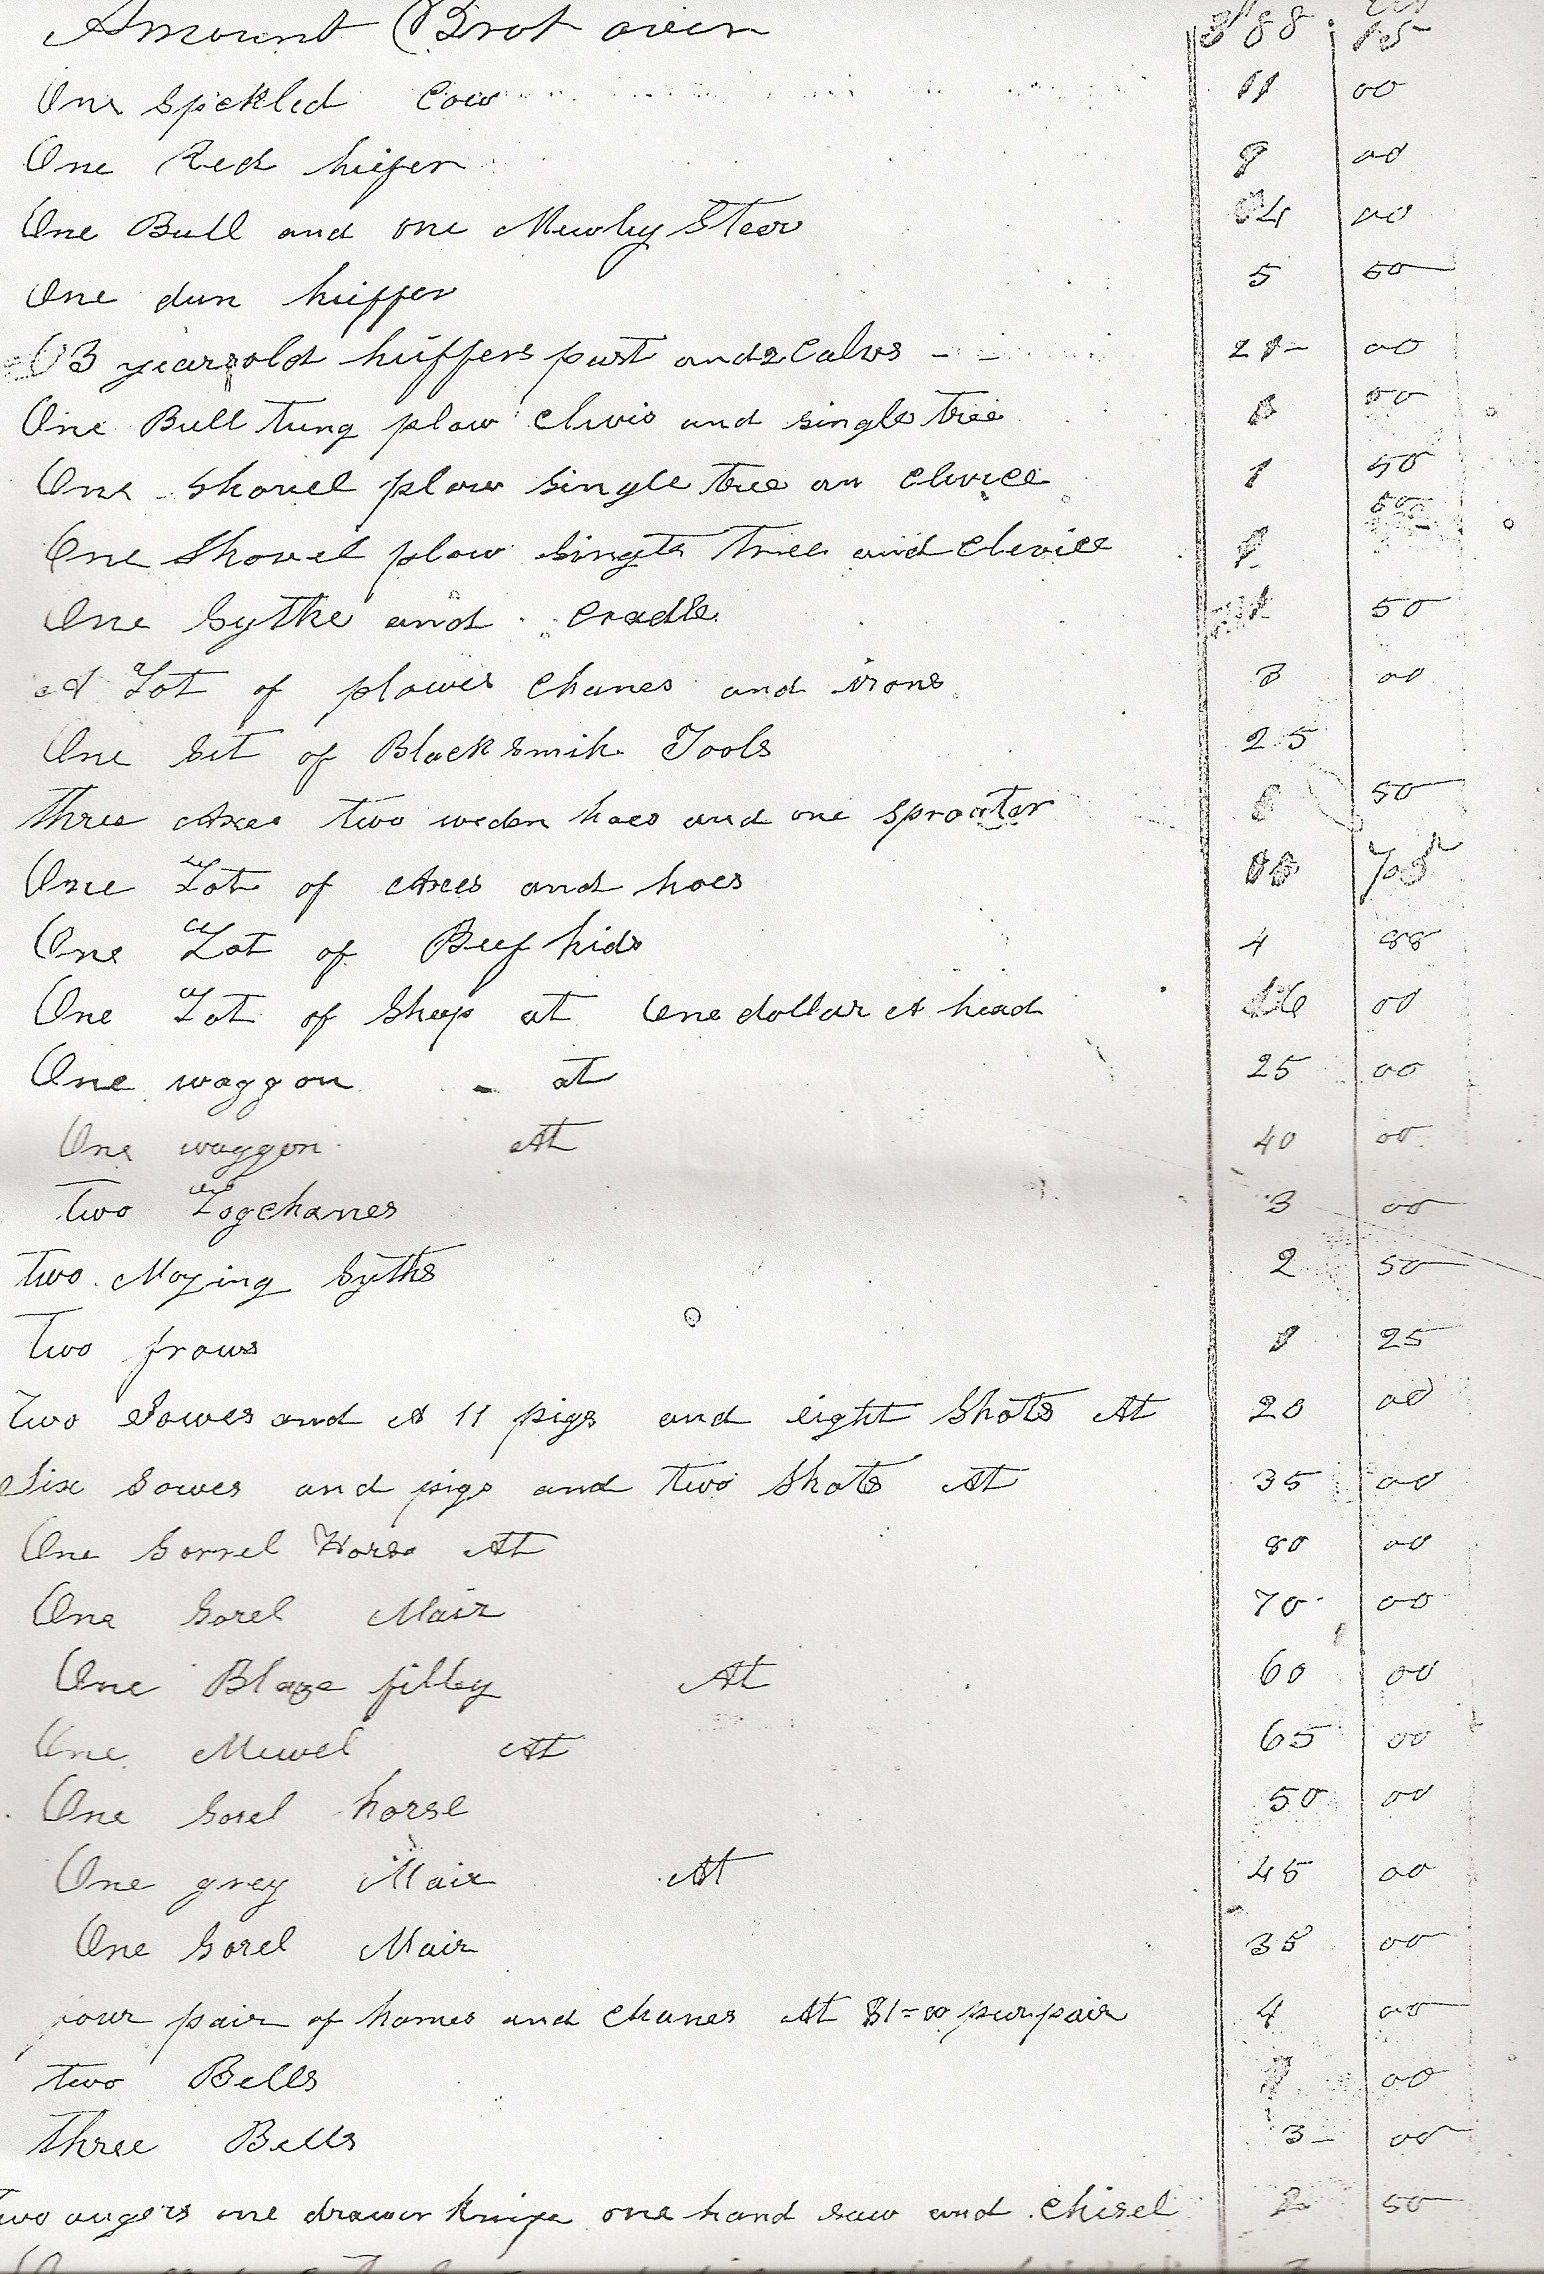 Amount Brot over 388 15
One Speckled Cow 11 00
One Red hiefer 9 00
One Bull and one Mewley Steer 14 00
One dun hieffer 5 50
3 years old hieffers past and 2 Calvs 21 00
One Bull tung plow Clivis and single tree 1 00
One Shovel plow Single tree an Clivice 1 50
One Shovel plow Singte tree and Clevice 1 50
One Sythe and Cradle 1 50
A Lot of plowes Chanes and irons 3 00
One Set of Blacksmith Tools 25
three Axes two weden hoes and one Sproater 1 50
One Lot of Axes and hoes
One Lot of Beef hids 4 88
One Lot of Sheep at One dollar A head 16 00
One waggon at 25 00
One waggon At 40 00
Two Logchanes 3 00
Two Moying Syths 2 50
Two frows 1 25
Two Sowes and A 11 pigs and eight Shots At 20 00
Six Sowes and pigs and two Shots At 35 00
One Sorrel Horse At 80 00
One Sorel Mair 70 00
One Blaze filley At 60 00
One Mewel At 65 00
One Sorel horse 50 00
One grey Mair At 45 00
One Sorel Mair 35 00
four pair of hames and Chanes At $1=00 pur pair 4 00
two Bells 00
three Bells 3 00
Two augers one drawer Knife one hand saw and Chisel 2 50